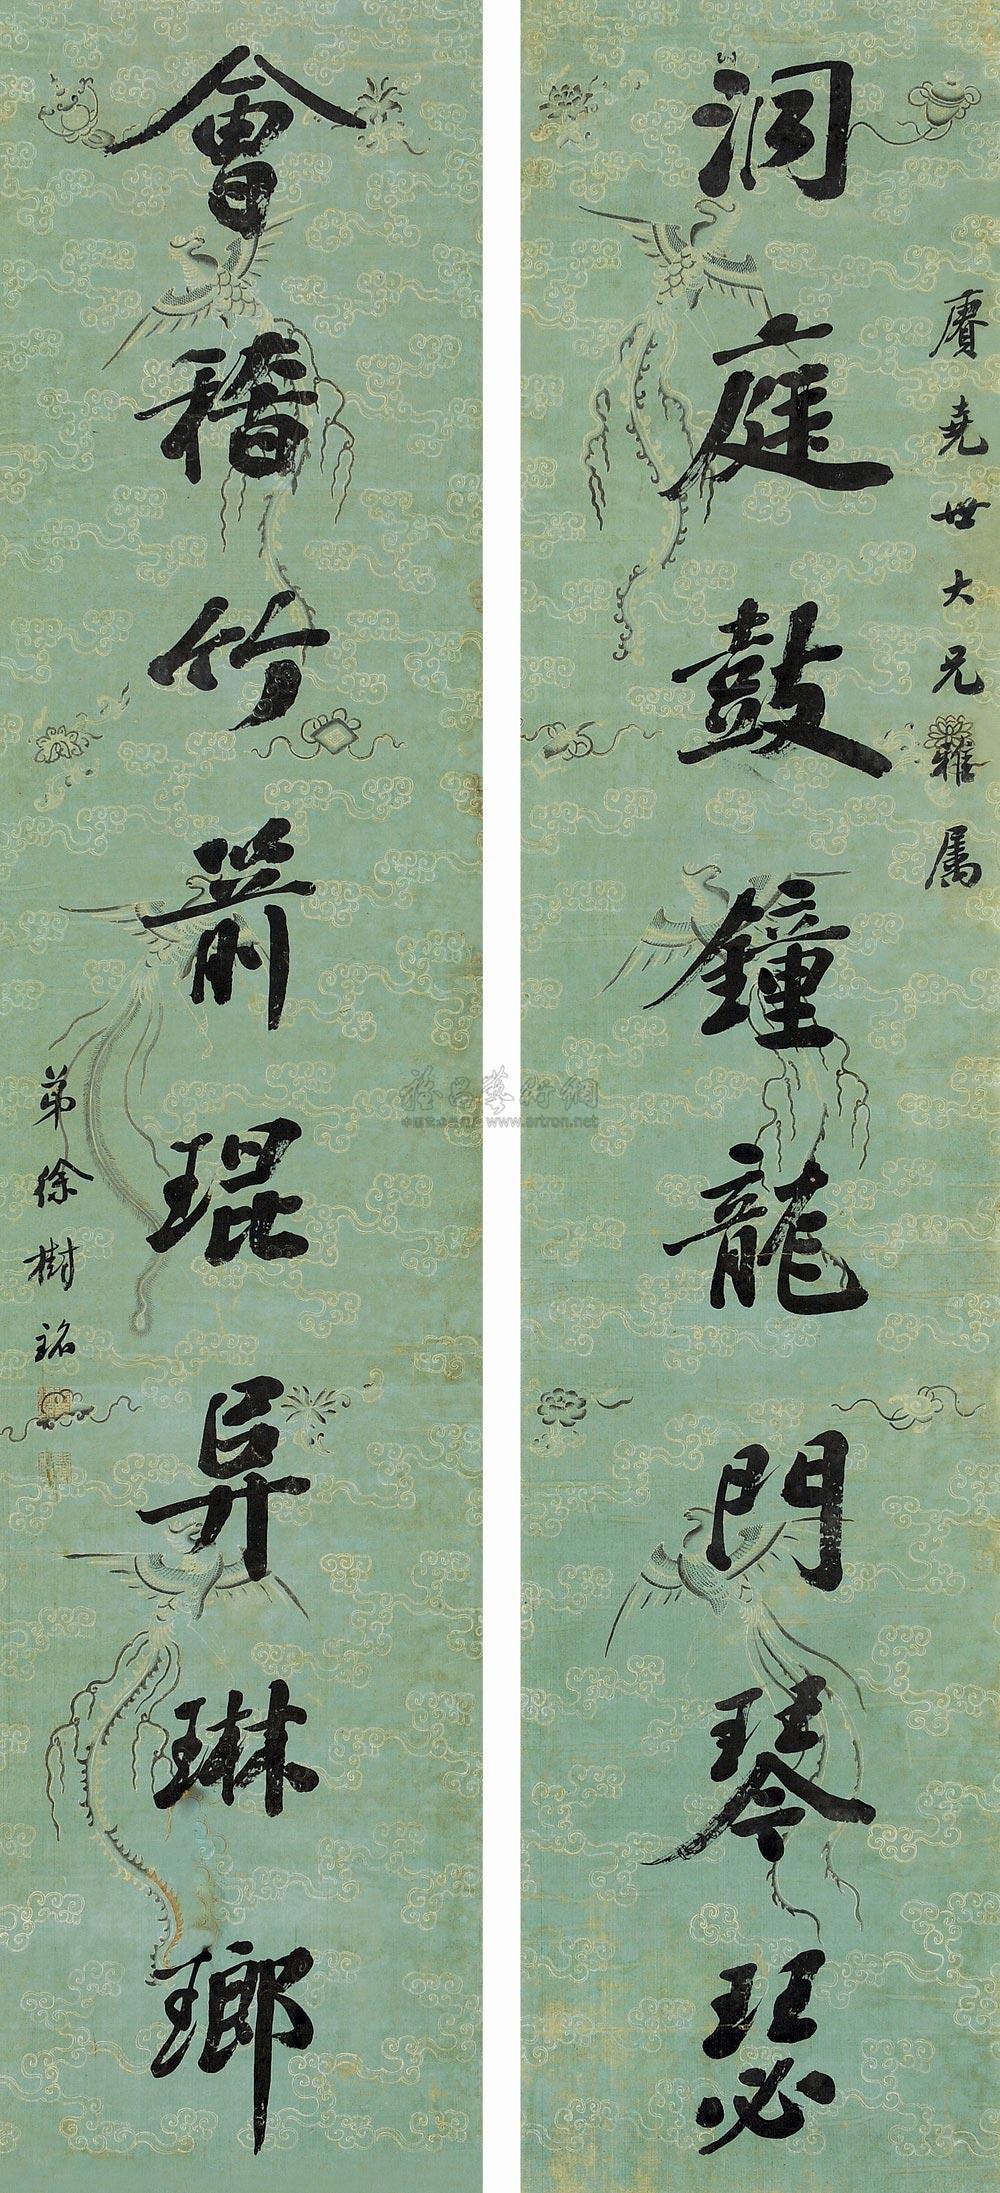 洞庭鼓鐘龍門琴瑟
賡堯世大兄雅属
會稽竹箭琨𢍰琳瑯
弟徐樹銘
雅昌藝術網
www.artron.net